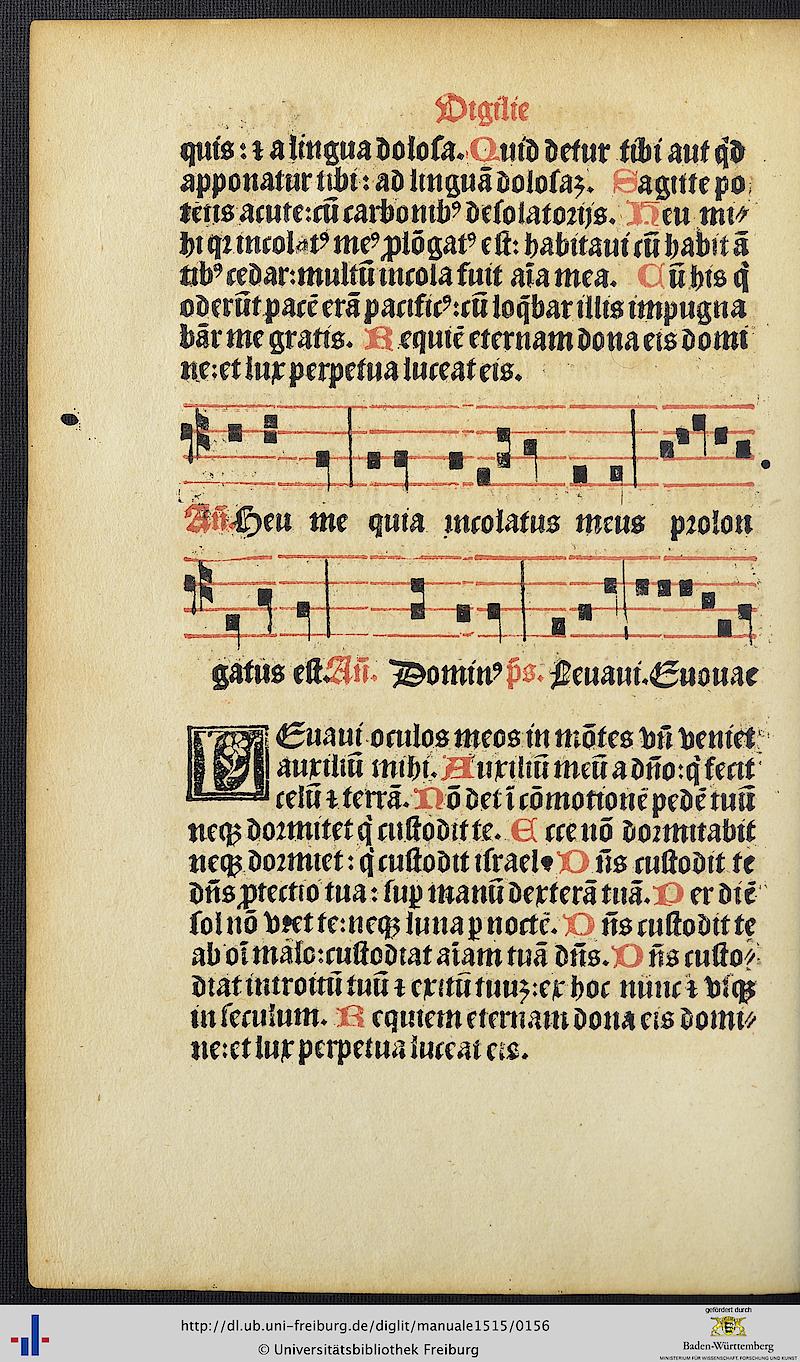 Vigilie
quis: ⁊ a lingua dolosa. Quid detur tibi aut q̇d
apponatur tibi: ad linguā dolosaꝫ. Sagitte po
tētis acute: cū carbonibꝰ desolatorijs. Heu mi⸗
hi qꝛ incolatꝰ meꝰ ꝓlōgatꝰ est: habitaui cū habitā
tibꝰ cedar: multū incola fuit aīa mea. Cū his q̇
oderūt pacē erā pacificꝰ: cū loq̄bar illis impugna
bār me gratis. Requiē eternam dona eis domi
ne: et lux perpetua luceat eis.
Añ. Heu me quia incolatus meus prolon
gatus est. Añ. Dominꝰ p̄s. Leuaui. Euouae
LEuaui oculos meos in mōtes vñ veniet
auxiliū mihi. Auxiliū meū a dño: q̇ fecit
celū ⁊ terrā. Nō det ī cōmotionē pedē tuū
neqꝫ dormitet q̇ custodit te. Ecce nō dormitabit
neqꝫ dormiet: q̇ custodit israel. Dñs custodit te
dñs ꝓtectio tua: suꝑ manū dexterā tuā. Per diē
sol nō vret te: neqꝫ luna ꝑ noctē. Dñs custodit te
ab oī malo: custodiat aīam tuā dñs. Dñs custo⸗
diat introitū tuū ⁊ exitū tuuꝫ: ex hoc nunc ⁊ vsqꝫ
in seculum. Requiem eternam dona eis domi⸗
ne: et lux perpetua luceat eis.
http://dl.ub.uni-freiburg.de/diglit/manuale1515/0156
© Universitätsbibliothek Freiburg
gefördert durch
Baden-Württemberg
MINISTERIUM FÜR WISSENSCHAFT, FORSCHUNG UND KUNST